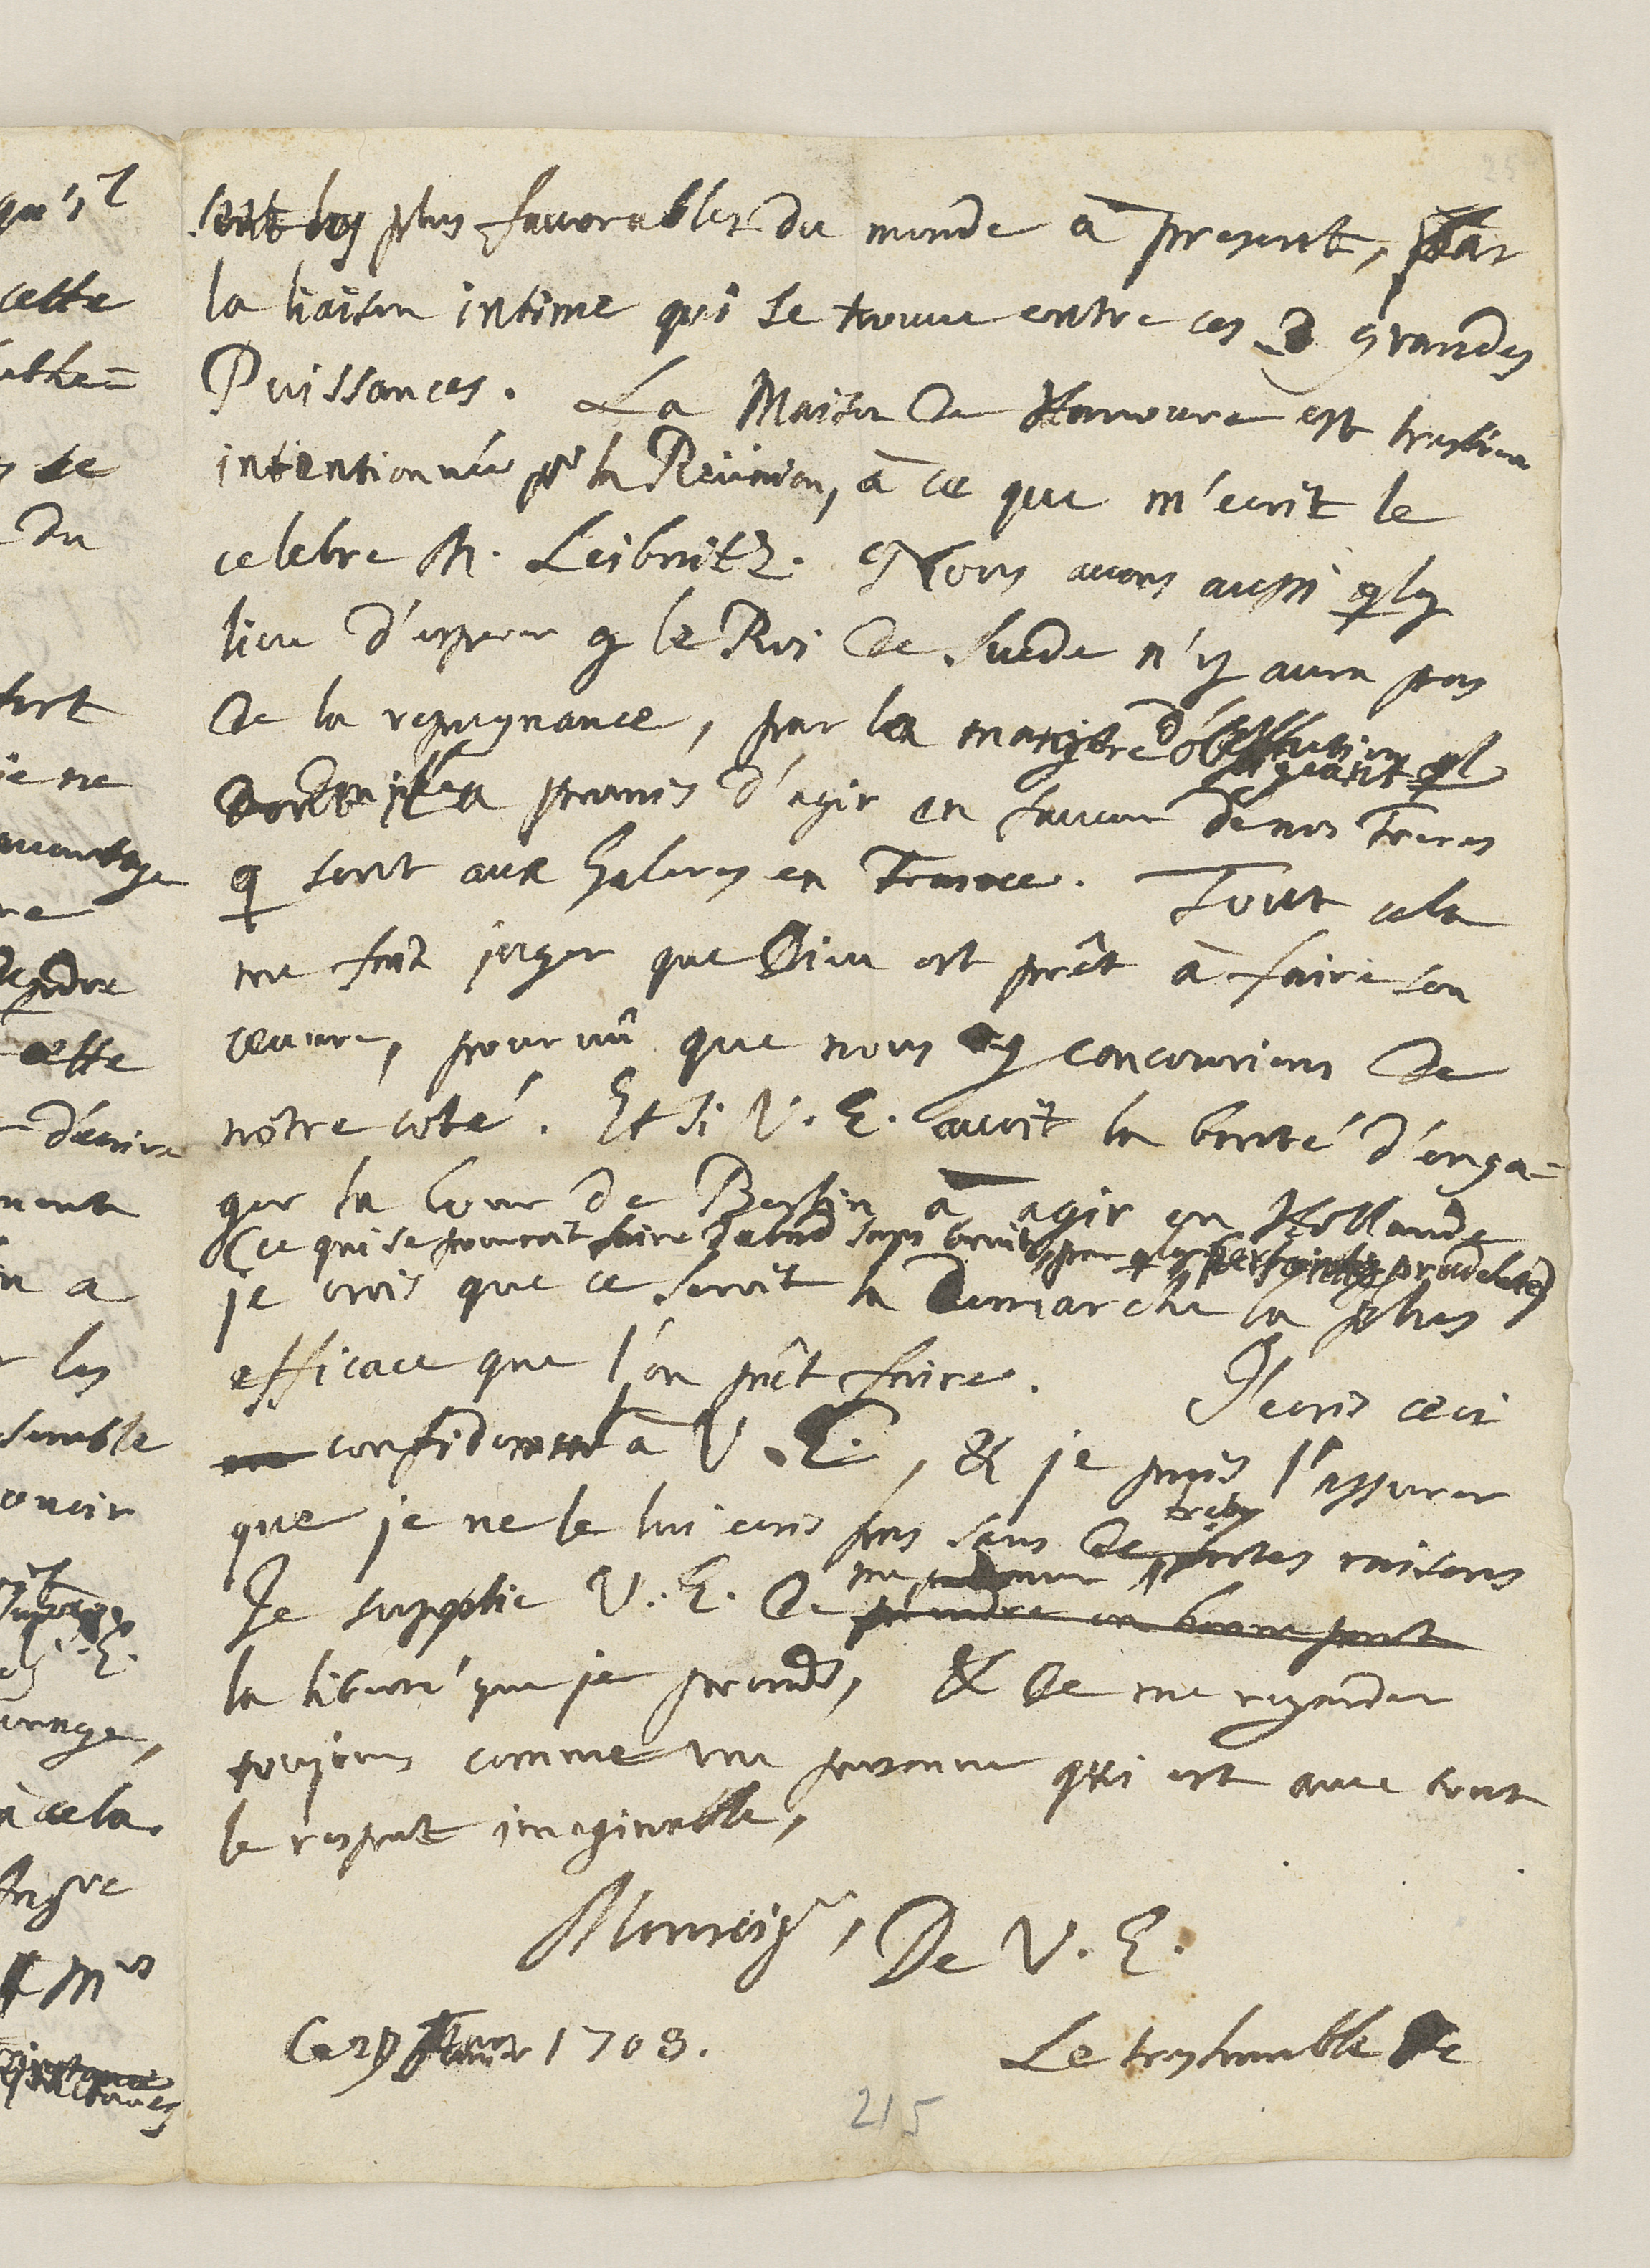 sont les plus favorables du monde à present, par
la liaison intime qui se trouve entre ces 2 grandes
Puissances. La Maison de Hanovre est tresbien
intentionnée pr la Reünion, à ce que m'ecrit le
celebre M. Leibnitz. Nous avons aussi qlq
lieu d'esperer q le Roi de Suede n'y aura pas
de la repugnance, par la maniere
dont il a promis d'agir en faveur de nos Freres
q sont aux Galeres en France. Tout cela
me fait juger que Dieu est prêt à faire son
oeuvre, pourvû que nous y concourions de
nôtre côté. Et si V. E. avoit la bonté d'enga-
ger la Cour de Berlin à agir en Hollande
(ce qui se pourroit faire d'abord sans bruit, par
je crois que ce seroit la demarche la plus
efficace que l'on pût faire. J'ecris ceci
confidemmt à V. E., & je puis l'assurer
que je ne le lui ecris pas sans de fortes raisons
Je supplie V. E. de me pardonner
prendre en bonne part
la liberté que je prends, & de me regarder
toujours comme une personne qui est avec tout
le respect imaginable,
Monseigr, De V. E.
Ce 1708.
Le treshumble &c
215
qu'il
cette
se
du
fort
je ne
avantage
cette
d'écrire
a
les
semble
à cela.
Mrs